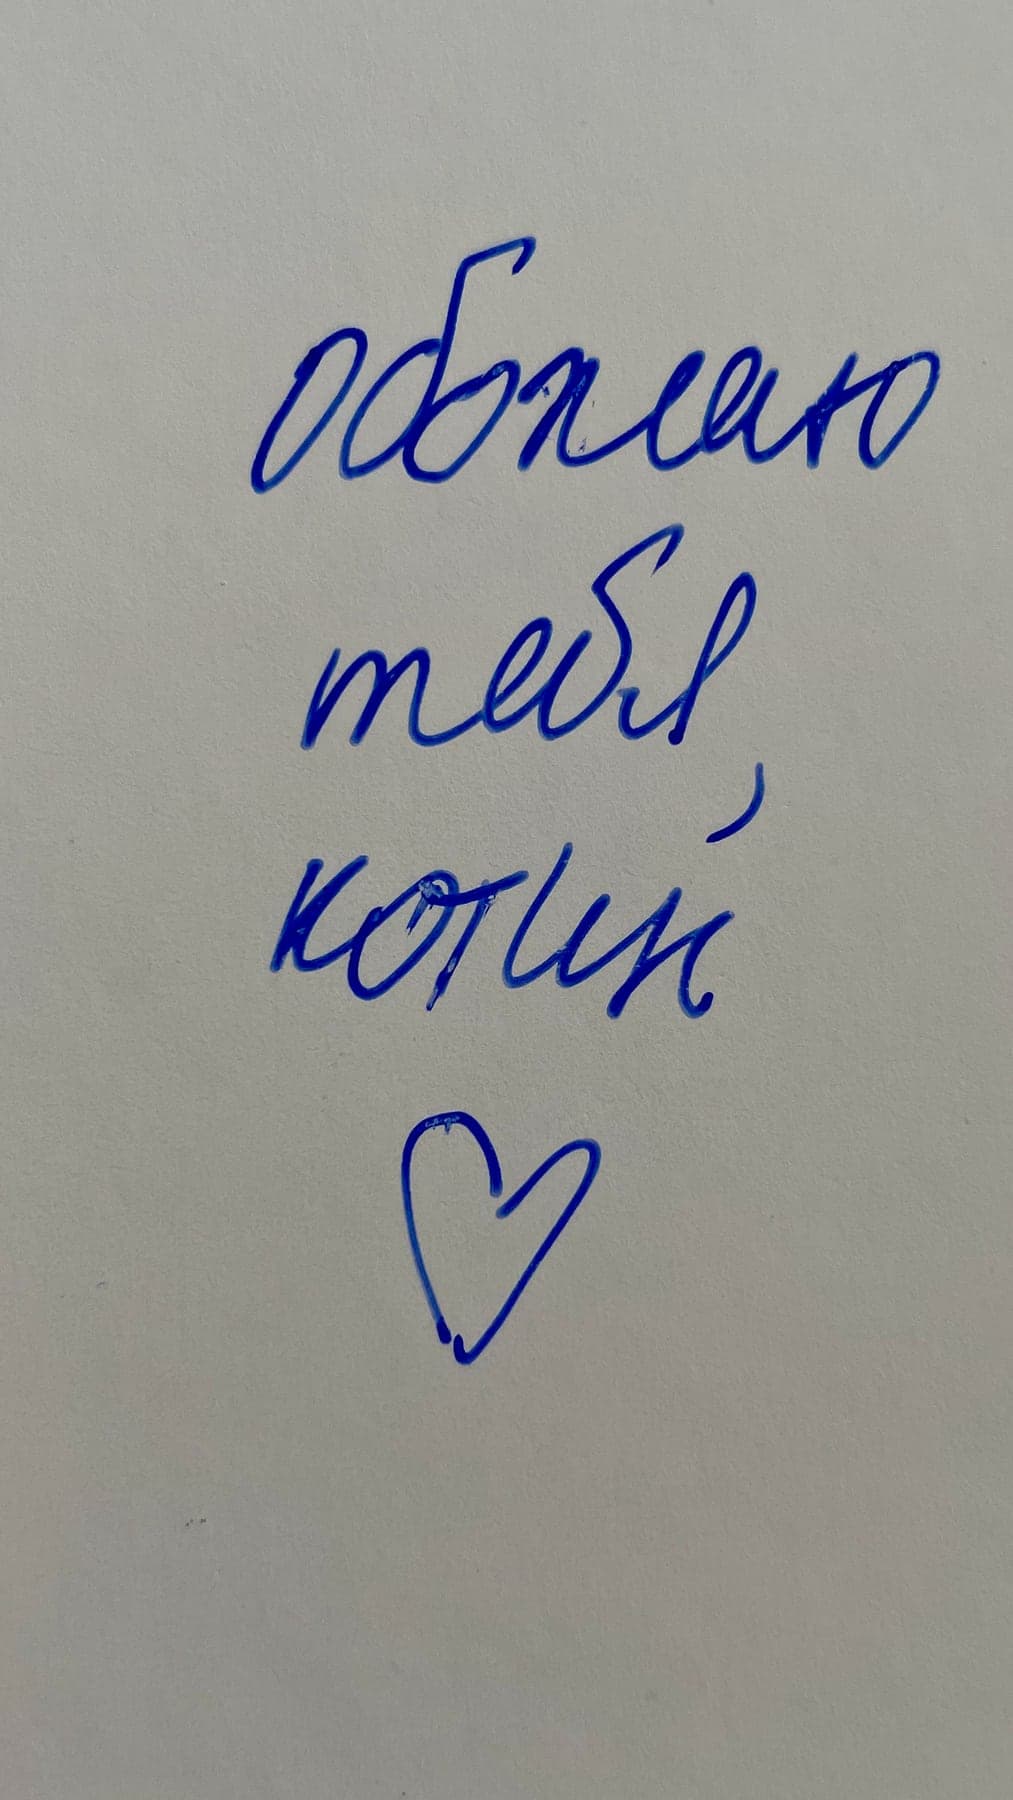 обожаю
тебя,
котик
♡